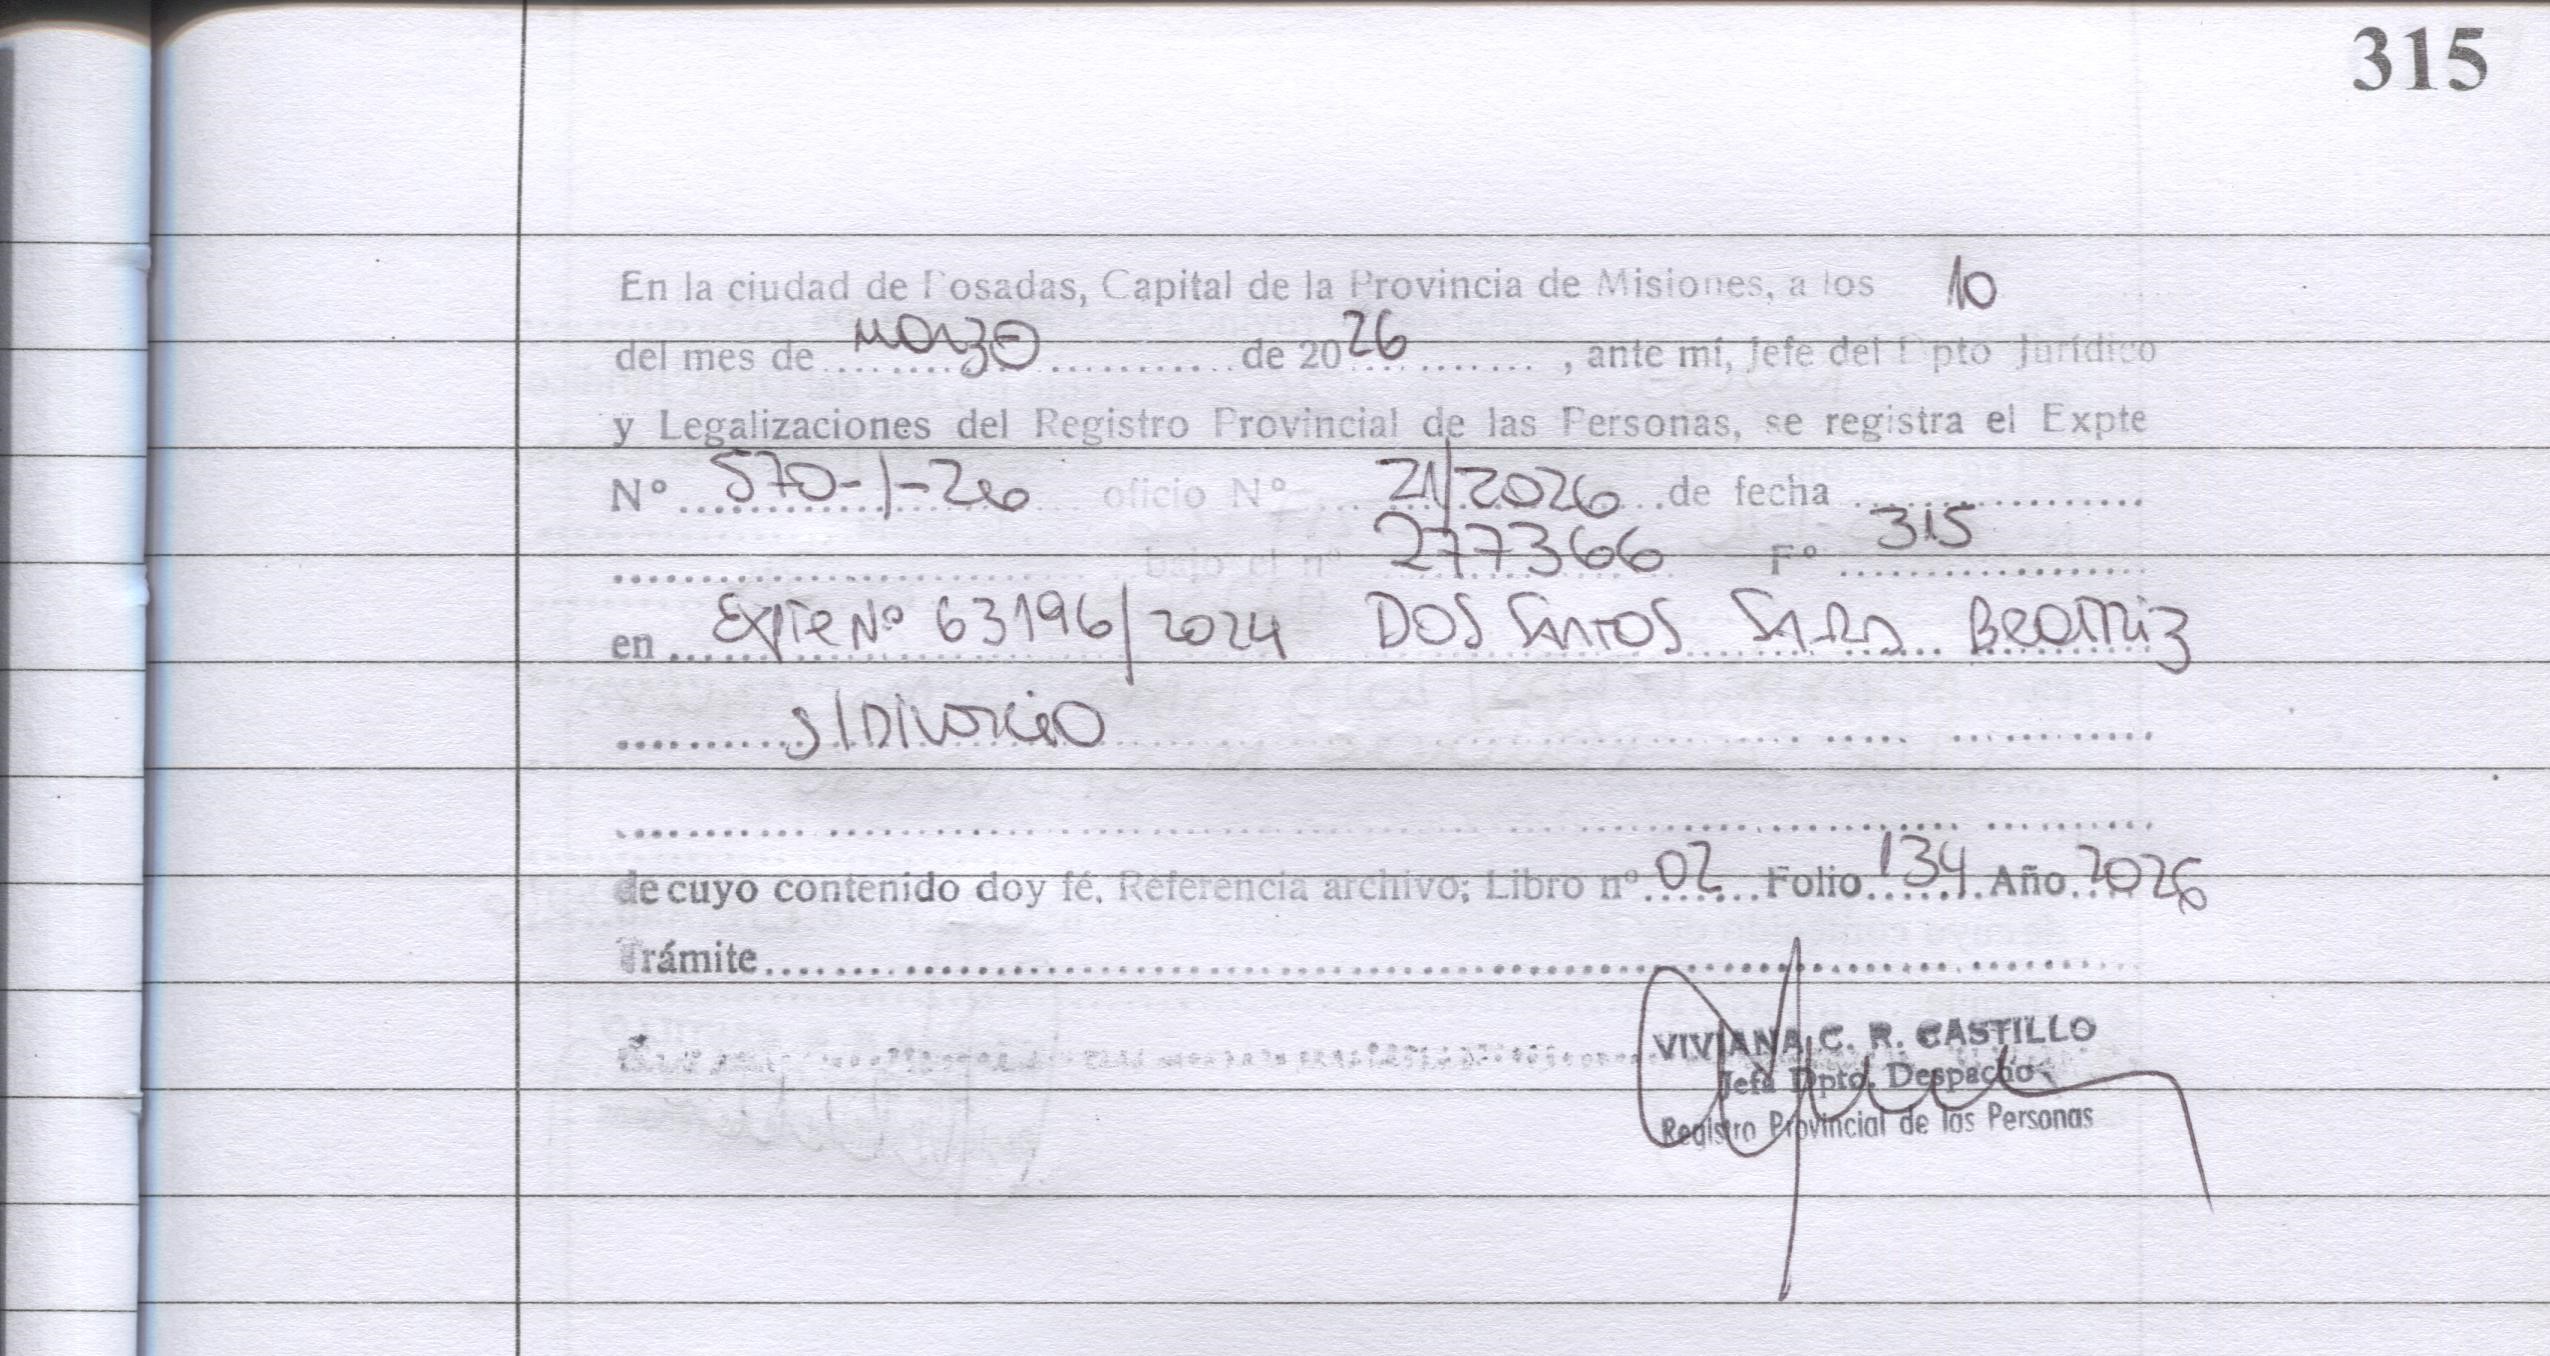 315
En la ciudad de Posadas, Capital de la Provincia de Misiones, a los 10
del mes de marzo de 2026, ante mí, Jefe del Dpto Jurídico
y Legalizaciones del Registro Provincial de las Personas, se registra el Expte
N° 570-1-26 oficio N° 21/2026 de fecha
bajo el n° 277366 F° 315
en Expte N° 63196/2024 DOS SANTOS SARA BEATRIZ
S/DIVORCIO
de cuyo contenido doy fé. Referencia archivo; Libro n° 02 Folio 134 Año 2026
Trámite
VIVIANA C. R. CASTILLO
Jefa Dpto. Despacho
Registro Provincial de las Personas